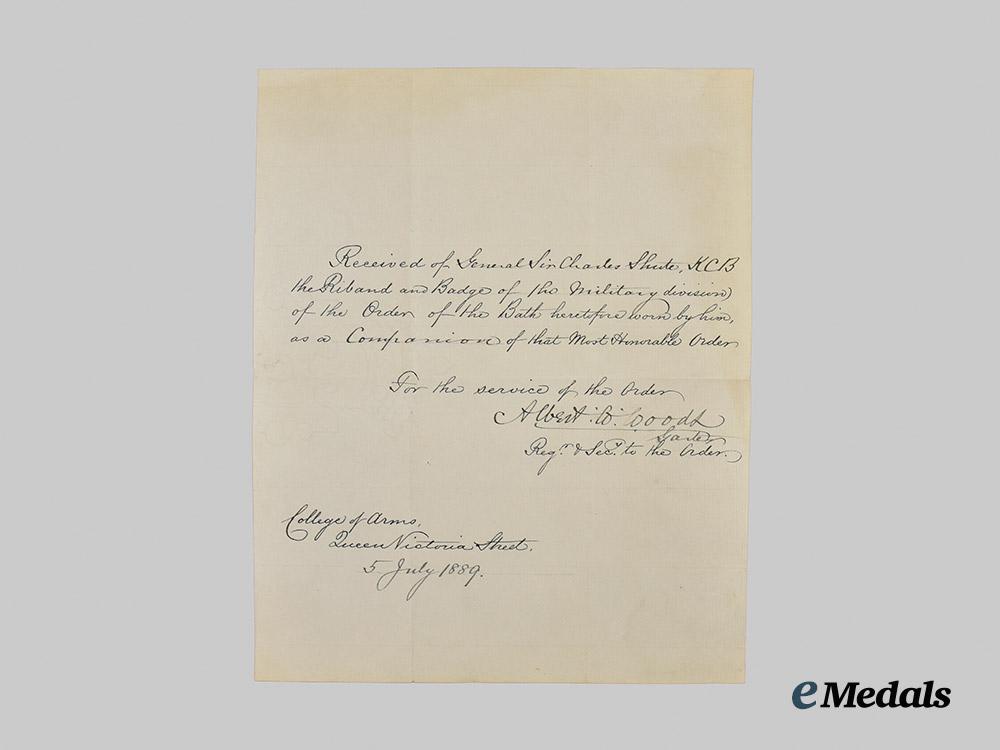 Received of General Sir Charles Shute, KCB
the Riband and Badge of the Military division
of the Order of the Bath heretofore worn by him,
as a Companion of that Most Honorable Order
For the service of the Order
Albert W. Woods
Garter
Regr. & Secy. to the Order.
College of Arms,
Queen Victoria Street.
5 July 1889.
eMedals